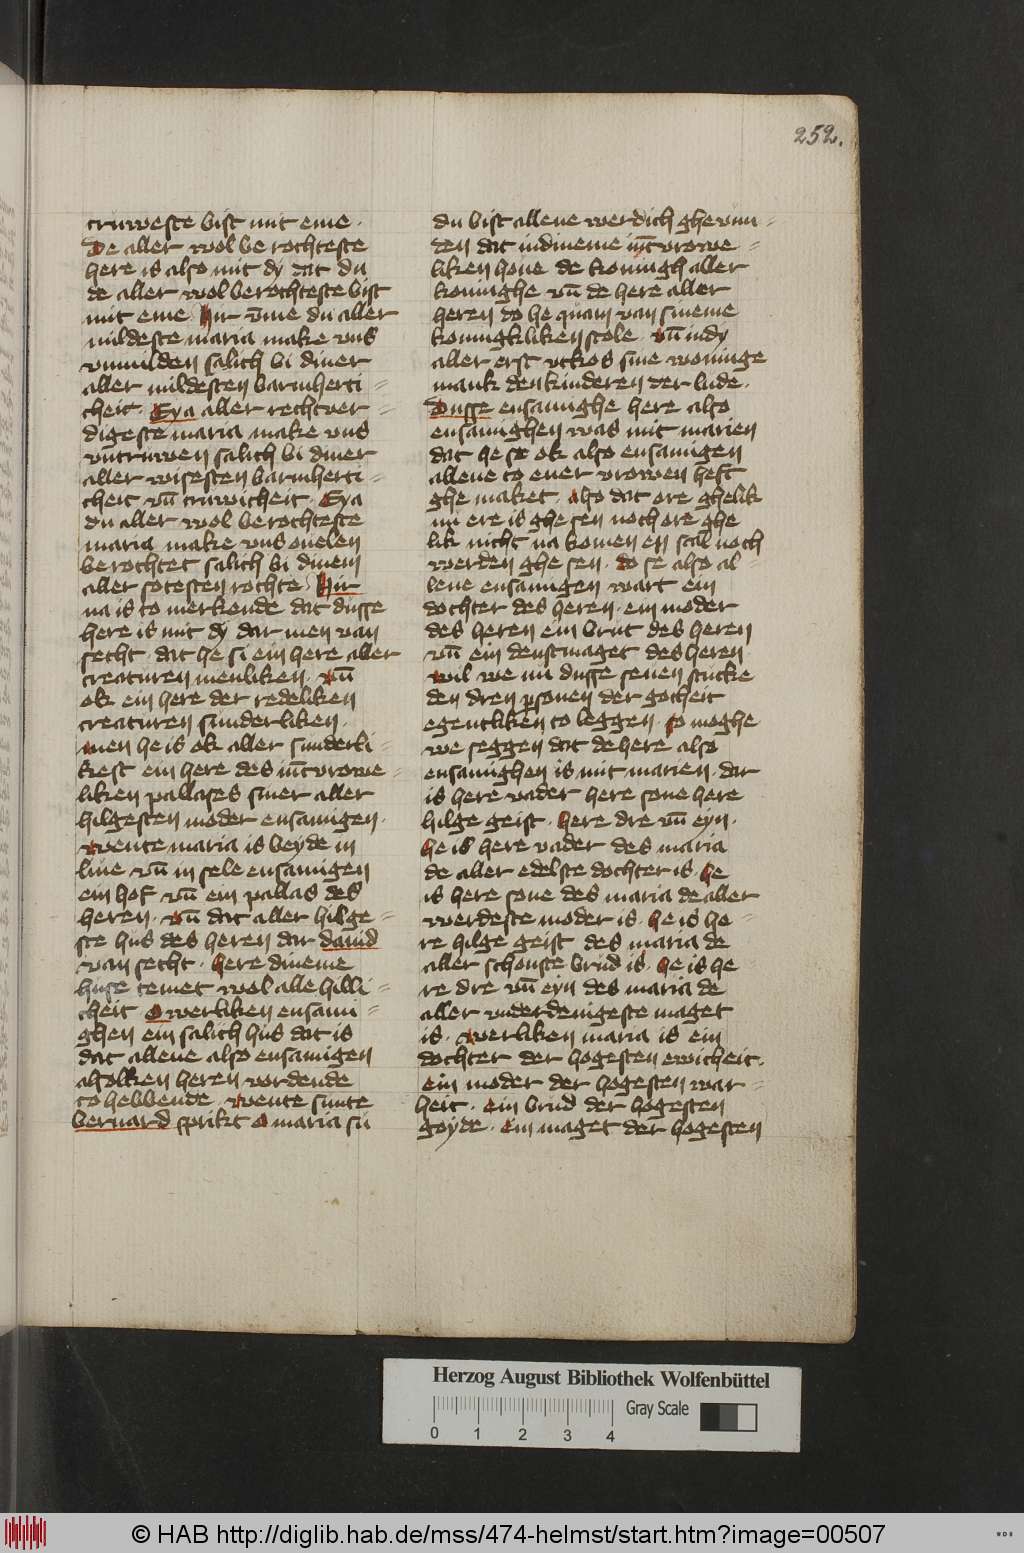 252.
truweste bist mit eme ·
De aller wol be rochteste
here is also mit dy dat du
de aller wol berochteste bist
mit eme · Hir v̄me du aller
mildeste maria make vns
vnmilden salich bi diner
aller mildesten barmherti=
cheit · Eya aller rechtver=
digeste maria make vns
vntruwen salich bi diner
aller wisesten barmherti=
cheit vn̄ truwicheit · Eya
du aller wol berochteste
maria make vns ouelen
berochtet salich bi dinem
aller sotesten rochte · Hir
na is to merkende dat dusse
here is mit dy dar men van
secht · dat he si ein here aller
creaturen menliken · vn̄
ok ein here der redeliken
creaturen sunderliken ·
men he is ok aller sunderli=
kest ein here des iūcvrowe=
liken pallases siner aller
hilgesten moder ensamigen ·
wente maria is beyde in
liue vn̄ in sele ensamigen
ein hof vn̄ ein pallas des
heren · vn̄ dat aller hilge=
ste hus des heren dar dauid
van secht · here dineme
huse temet wol alle hilli=
cheit Owerliken ensami=
ghen ein salich hus dat is
dat allene also ensamigen
alsolken heren vordende
to hebbende · wente sunte
bernard sprikt O maria su
du bist allene werdich ghevun=
den dat indineme iūcvrowe=
liken houe de koningh aller
koninghe vn̄ de here aller
heren do he quam van sineme
koningkliken stole · vn̄ in dy
aller erst vtkos sine woninge
mank den kinderen der lude ·
Dusse ensamighe here also
ensamighen was mit marien
dat he se ok also ensamigen
allene to ener vrowen heft
ghe maket · also dat ore ghelik
nu ere is ghe sen noch ore ghe
lik nicht na komen en scal noch
werden ghe sen · do se also al=
lene ensamigen wart ein
dochter des heren · ein moder
des heren ein brut des heren
vn̄ ein denstmaget des heren
wil we nu dusse seuen stucke
den dren psonen der gotheit
egentliken to leggen · so moghe
we seggen dat de here also
ensamighen is mit marien · dar
is here vader here sone here
hilge geist · here dre vn̄ eyn ·
he is here vader des maria
de aller edelste dochter is · he
is here sone des maria de aller
werdeste moder is · he is he=
re hilge geist des maria de
aller schonste brud is · he is he=
re dre vn̄ eyn des maria de
aller vnderdenigeste maget
is · werliken maria is ein
dochter der hogesten ewicheit ·
ein moder der hogesten war=
heit · ein brud der hogesten
goyde · ein maget der hogesten
Herzog August Bibliothek Wolfenbüttel
Gray Scale
0 1 2 3 4
© HAB http://diglib.hab.de/mss/474-helmst/start.htm?image=00507